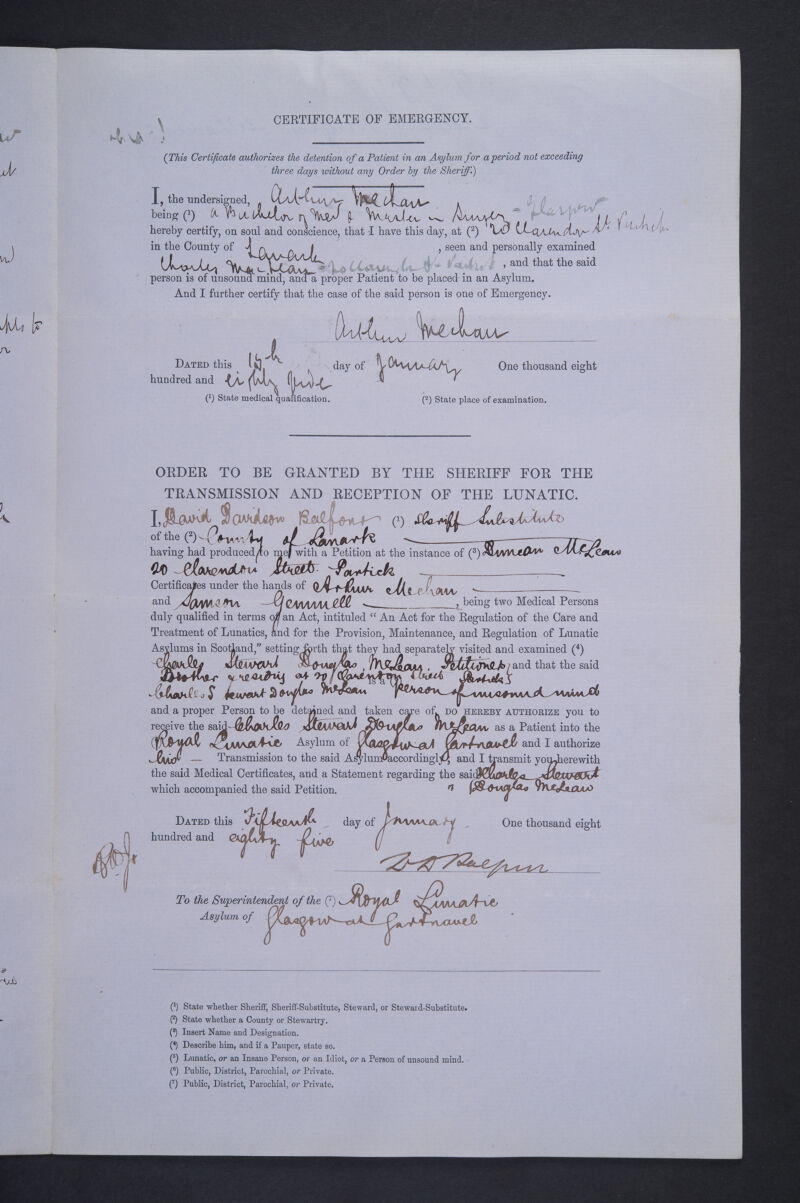 CERTIFICATE OF EMERGENCY.
(This Certificate authorizes the detention of a Patient in an Asylum for a period not exceeding
three days without any Order by the Sheriff.)
I, the undersigned, Arthur Mechan
being (1) a Bachelor of Med & Master in Surgery - Glasgow
hereby certify, on soul and conscience, that I have this day, at (2) 20 Clarendon St. Partick
in the County of Lanark , seen and personally examined
Charles MacLean 20 Clarendon St Partick , and that the said
person is of unsound mind, and a proper Patient to be placed in an Asylum.
And I further certify that the case of the said person is one of Emergency.
Arthur Mechan
DATED this 15th day of January One thousand eight
hundred and eighty five
(1) State medical qualification. (2) State place of examination.
ORDER TO BE GRANTED BY THE SHERIFF FOR THE
TRANSMISSION AND RECEPTION OF THE LUNATIC.
I, David Davidson Balfour (1) Sheriff Substitute
of the (2) County of Lanark
having had produced to me with a Petition at the instance of (3) Duncan McLean
20 Clarendon Street Partick
Certificates under the hands of Arthur Mechan
and Samson Gemmell , being two Medical Persons
duly qualified in terms of an Act, intituled " An Act for the Regulation of the Care and
Treatment of Lunatics, and for the Provision, Maintenance, and Regulation of Lunatic
Asylums in Scotland," setting forth that they had separately visited and examined (4)
Charles Stewart Douglas McLean, Petitioner's and that the said
Brother & residing at 20 Clarendon Street Partick
Charles Stewart Douglas McLean is a (5) Person of unsound mind
and a proper Person to be detained and taken care of, DO HEREBY AUTHORIZE you to
receive the said Charles Stewart Douglas McLean as a Patient into the
(6) Royal Lunatic Asylum of Glasgow at Gartnavel and I authorize
his — Transmission to the said Asylum accordingly; and I transmit you herewith
the said Medical Certificates, and a Statement regarding the said Charles Stewart
which accompanied the said Petition. Douglas McLean
DATED this Fifteenth day of January One thousand eight
hundred and eighty five
D D Balfour
To the Superintendent of the (7) Royal Lunatic
Asylum of Glasgow at Gartnavel
(1) State whether Sheriff, Sheriff-Substitute, Steward, or Steward-Substitute.
(2) State whether a County or Stewartry.
(3) Insert Name and Designation.
(4) Describe him, and if a Pauper, state so.
(5) Lunatic, or an Insane Person, or an Idiot, or a Person of unsound mind.
(6) Public, District, Parochial, or Private.
(7) Public, District, Parochial, or Private.